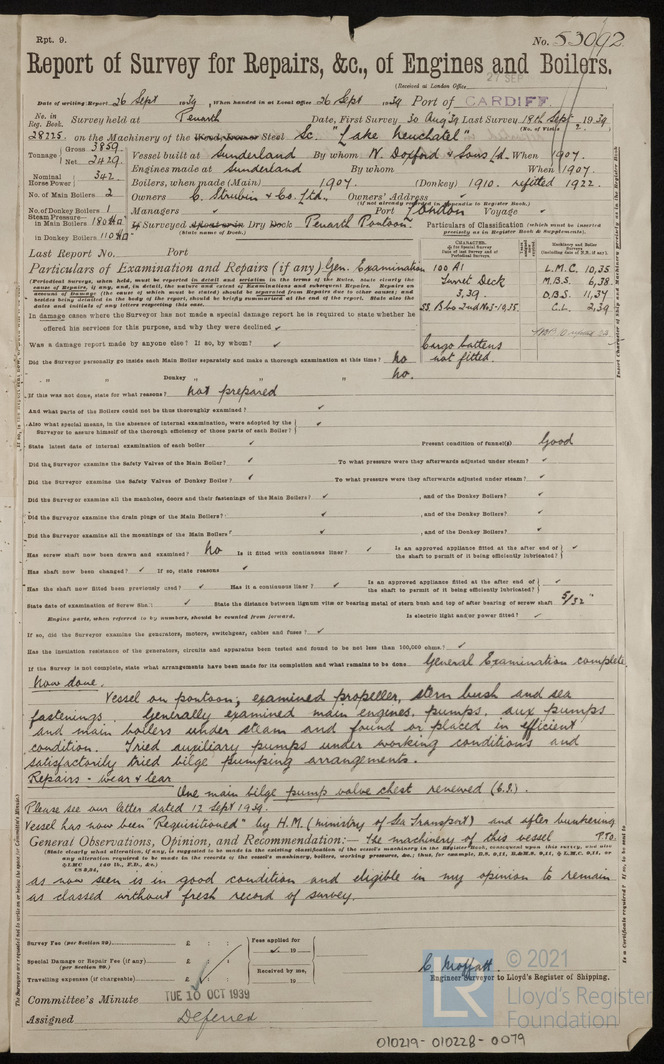 Rpt. 9.
No. 53092
Report of Survey for Repairs, &c., of Engines and Boilers.
(Received at London Office 27 SEP
Date of writing Report 26 Sept 1939, When handed in at Local Office 26 Sept 1939 Port of CARDIFF.
No. in Reg. Book. Survey held at Penarth Date, First Survey 30 Aug 39 Last Survey 18th Sept 1939
(No. of Visits 2.)
28225 on the Machinery of the Wood, Iron or Steel Sc. "Lake Neuchatel"
Tonnage Gross 3859 Net 2429 Vessel built at Sunderland By whom W. Doxford & Sons Ld. When 1907.
Engines made at Sunderland By whom When 1907.
Nominal Horse Power 342. Boilers, when made (Main) 1907. (Donkey) 1910. refitted 1922.
No. of Main Boilers 2 Owners C. Strubin & Co. Ltd., Owners' Address ✓
(If not already recorded in Appendix to Register Book.)
No. of Donkey Boilers 1 Managers ✓ Port London Voyage ✓
Steam Pressure in Main Boilers 180 If Surveyed Afloat or in Dry Dock Penarth Pontoon.
(State name of Dock.)
in Donkey Boilers 110
Particulars of Classification (which must be inserted precisely as in Register Book & Supplements).
Last Report No. Port
Particulars of Examination and Repairs (if any) Gen. Examination
CHARACTER.
Machinery and Boiler Surveys
100 A1 L.M.C. 10,35
Turret Deck M.B.S. 6,38
3,39 D.B.S. 11,37
C.L. 2,39
Cargo battens
not fitted.
(Periodical Surveys, when held, must be reported in detail and seriatim in the terms of the Rules. State clearly the cause of Repairs, if any, and, in detail, the nature and extent of Examinations and subsequent Repairs. Repairs on account of Damage (the cause of which must be stated) should be separated from Repairs due to other causes; and besides being detailed in the body of the report, should be briefly summarised at the end of the report. State also the dates and initials of any letters respecting this case.
In damage cases where the Surveyor has not made a special damage report he is required to state whether he
offered his services for this purpose, and why they were declined ✓
Was a damage report made by anyone else? If so, by whom? ✓
Did the Surveyor personally go inside each Main Boiler separately and make a thorough examination at this time? No
" " Donkey " " " No.
If this was not done, state for what reasons? not prepared
And what parts of the Boilers could not be thoroughly examined? ✓
Also what special means, in the absence of internal examination, were adopted by the Surveyor to assure himself of the thorough efficiency of those parts of each Boiler? ✓
State latest date of internal examination of each boiler ✓ Present condition of funnel(s) Good
Did the Surveyor examine the Safety Valves of the Main Boiler? ✓ To what pressure were they afterwards adjusted under steam? ✓
Did the Surveyor examine the Safety Valves of Donkey Boiler? ✓ To what pressure were they afterwards adjusted under steam? ✓
Did the Surveyor examine all the manholes, doors and their fastenings of the Main Boilers? ✓ , and of the Donkey Boilers? ✓
Did the Surveyor examine the drain plugs of the Main Boilers? ✓ , and of the Donkey Boilers? ✓
Did the Surveyor examine all the mountings of the Main Boilers ✓ , and of the Donkey Boilers? ✓
Has screw shaft now been drawn and examined? No Is it fitted with continuous liner? ✓ Is an approved appliance fitted at the after end of the shaft to permit of it being efficiently lubricated? ✓
Has shaft now been changed? ✓ If so, state reasons ✓
Has the shaft now fitted been previously used? ✓ Has it a continuous liner? ✓ Is an approved appliance fitted at the after end of the shaft to permit of it being efficiently lubricated? ✓
State date of examination of Screw Shaft ✓ State the distance between lignum vitæ or bearing metal of stern bush and top of after bearing of screw shaft 5/32"
Engine parts, when referred to by numbers, should be counted from forward. Is electric light and/or power fitted? ✓
If so, did the Surveyor examine the generators, motors, switchgear, cables and fuses? ✓
Has the insulation resistance of the generators, circuits and apparatus been tested and found to be not less than 100,000 ohms? ✓
If the Survey is not complete, state what arrangements have been made for its completion and what remains to be done General Examination complete.
Now done.
Vessel on pontoon; examined propeller, stern bush and sea
fastenings. Generally examined main engines, pumps, aux pumps
and main boilers under steam and found or placed in efficient
condition. Tried auxiliary pumps under working conditions and
satisfactorily tried bilge pumping arrangements.
Repairs - wear & tear
One main bilge pump valve chest renewed (C.I.).
Please see our letter dated 12 Sept 1939.
Vessel has now been "Requisitioned" by H.M. (Ministry of Sea Transport) and after bunkering
P.T.O.
General Observations, Opinion, and Recommendation:— The machinery of this vessel
(State clearly what alteration, if any, is suggested to be made in the existing classification of the vessel's machinery in the Register Book, consequent upon this survey, and also any alteration required to be made in the records of the vessel's machinery, boilers, working pressures, &c.; thus, for example, B.S. 9,11, B.&M.S. 9,11, or L.M.C. 9,11, or
as now seen is in good condition and eligible in my opinion to remain
as classed without fresh record of survey.
Survey Fee (per Section 29) £ : : Fees applied for
Special Damage or Repair Fee (if any) £ : : 19
(per Section 29.)
Travelling expenses (if chargeable) £ : : Received by me, 19
C. Moffatt.
Engineer Surveyor to Lloyd's Register of Shipping.
Committee's Minute TUE 10 OCT 1939
Assigned Deferred
© 2021
Lloyd's Register
Foundation
LR
010219-010228-0079